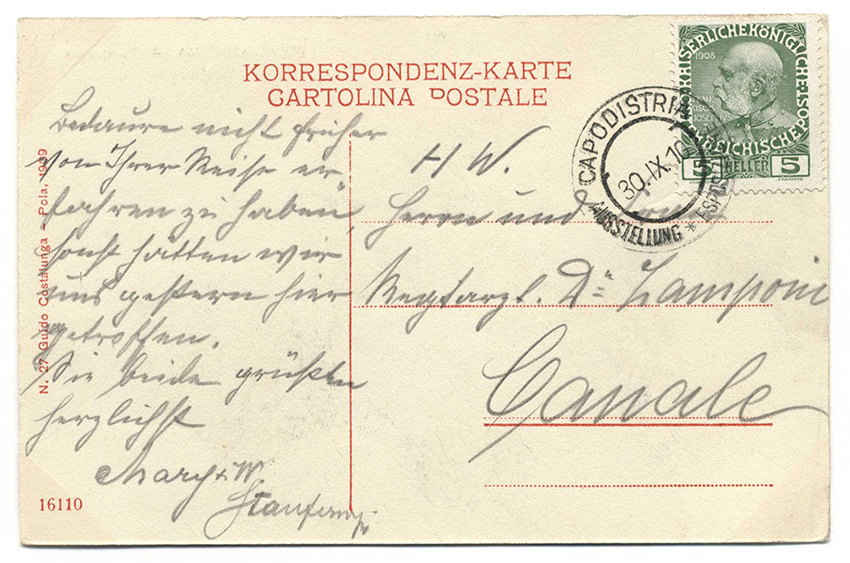 KORRESPONDENZ-KARTE
CARTOLINA POSTALE
Bedaure nicht früher
von Ihrer Reise er-
fahren zu haben,
sonst hätten wir
uns gestern hier
getroffen.
Sie beide grüßen
herzlichst
Mary + W
H W.
Herrn und Frau
Regtarzt. Dr Zamponi
Canale
CAPODISTRIA
30.IX.10
AUSSTELLUNG *
KAISERLICHE KÖNIGLICHE ÖS
REICHISCHE
1908
5 HELLER 5
N. 27 Guido Costalunga - Pola, 1909
16110